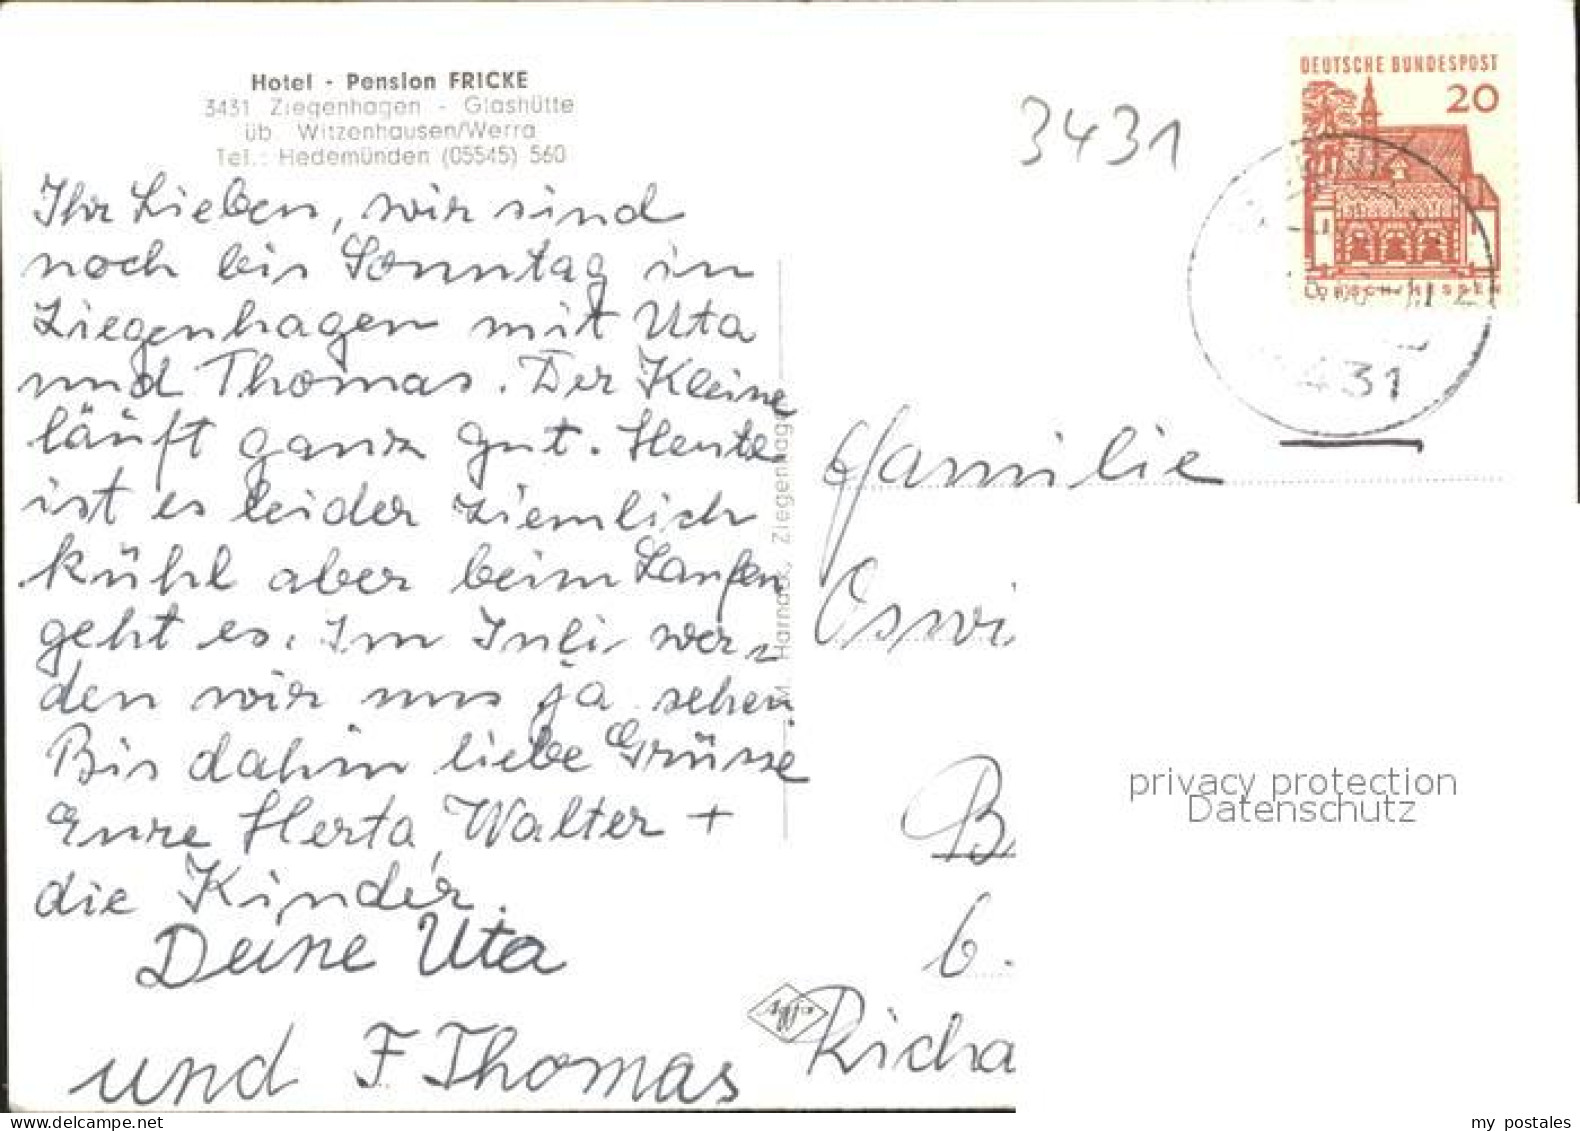 Hotel - Pension FRICKE
3431 Ziegenhagen - Glashütte
üb Witzenhausen/Werra
Tel.: Hedemünden (05545) 560
Ihr Lieben, wir sind
noch bis Sonntag in
Ziegenhagen mit Uta
und Thomas. Der Kleine
läuft ganz gut. Heute
ist es leider ziemlich
kühl aber beim Laufen
geht es. Im Juli wer-
den wir uns ja sehen
Bis dahin liebe Grüsse
Eure Herta, Walter +
die Kinder.
Deine Uta
und F Thomas
M. Harnack, Ziegenhagen
3431
DEUTSCHE BUNDESPOST
20
LORSCH/HESSEN
431
Familie
Oswi
B
6.
Richa
privacy protection
Datenschutz
my postales
www.delcampe.net